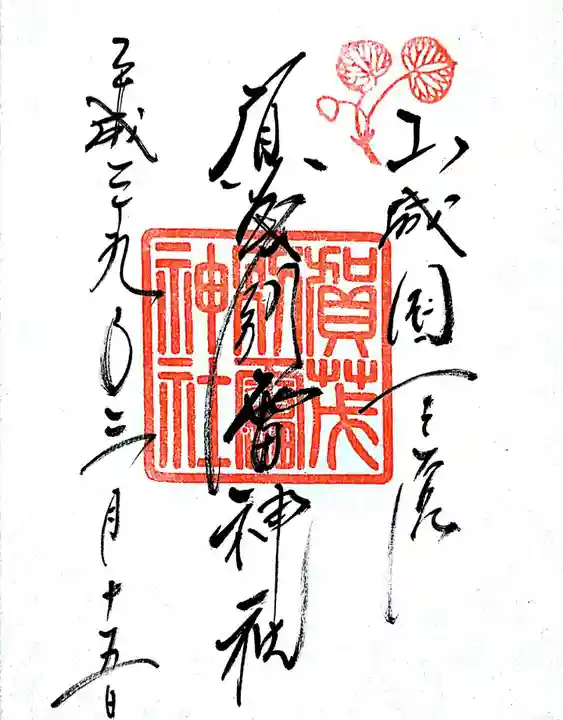 山城国一之宮
賀茂別雷神社
賀茂別雷神社
平成二十九年三月十五日